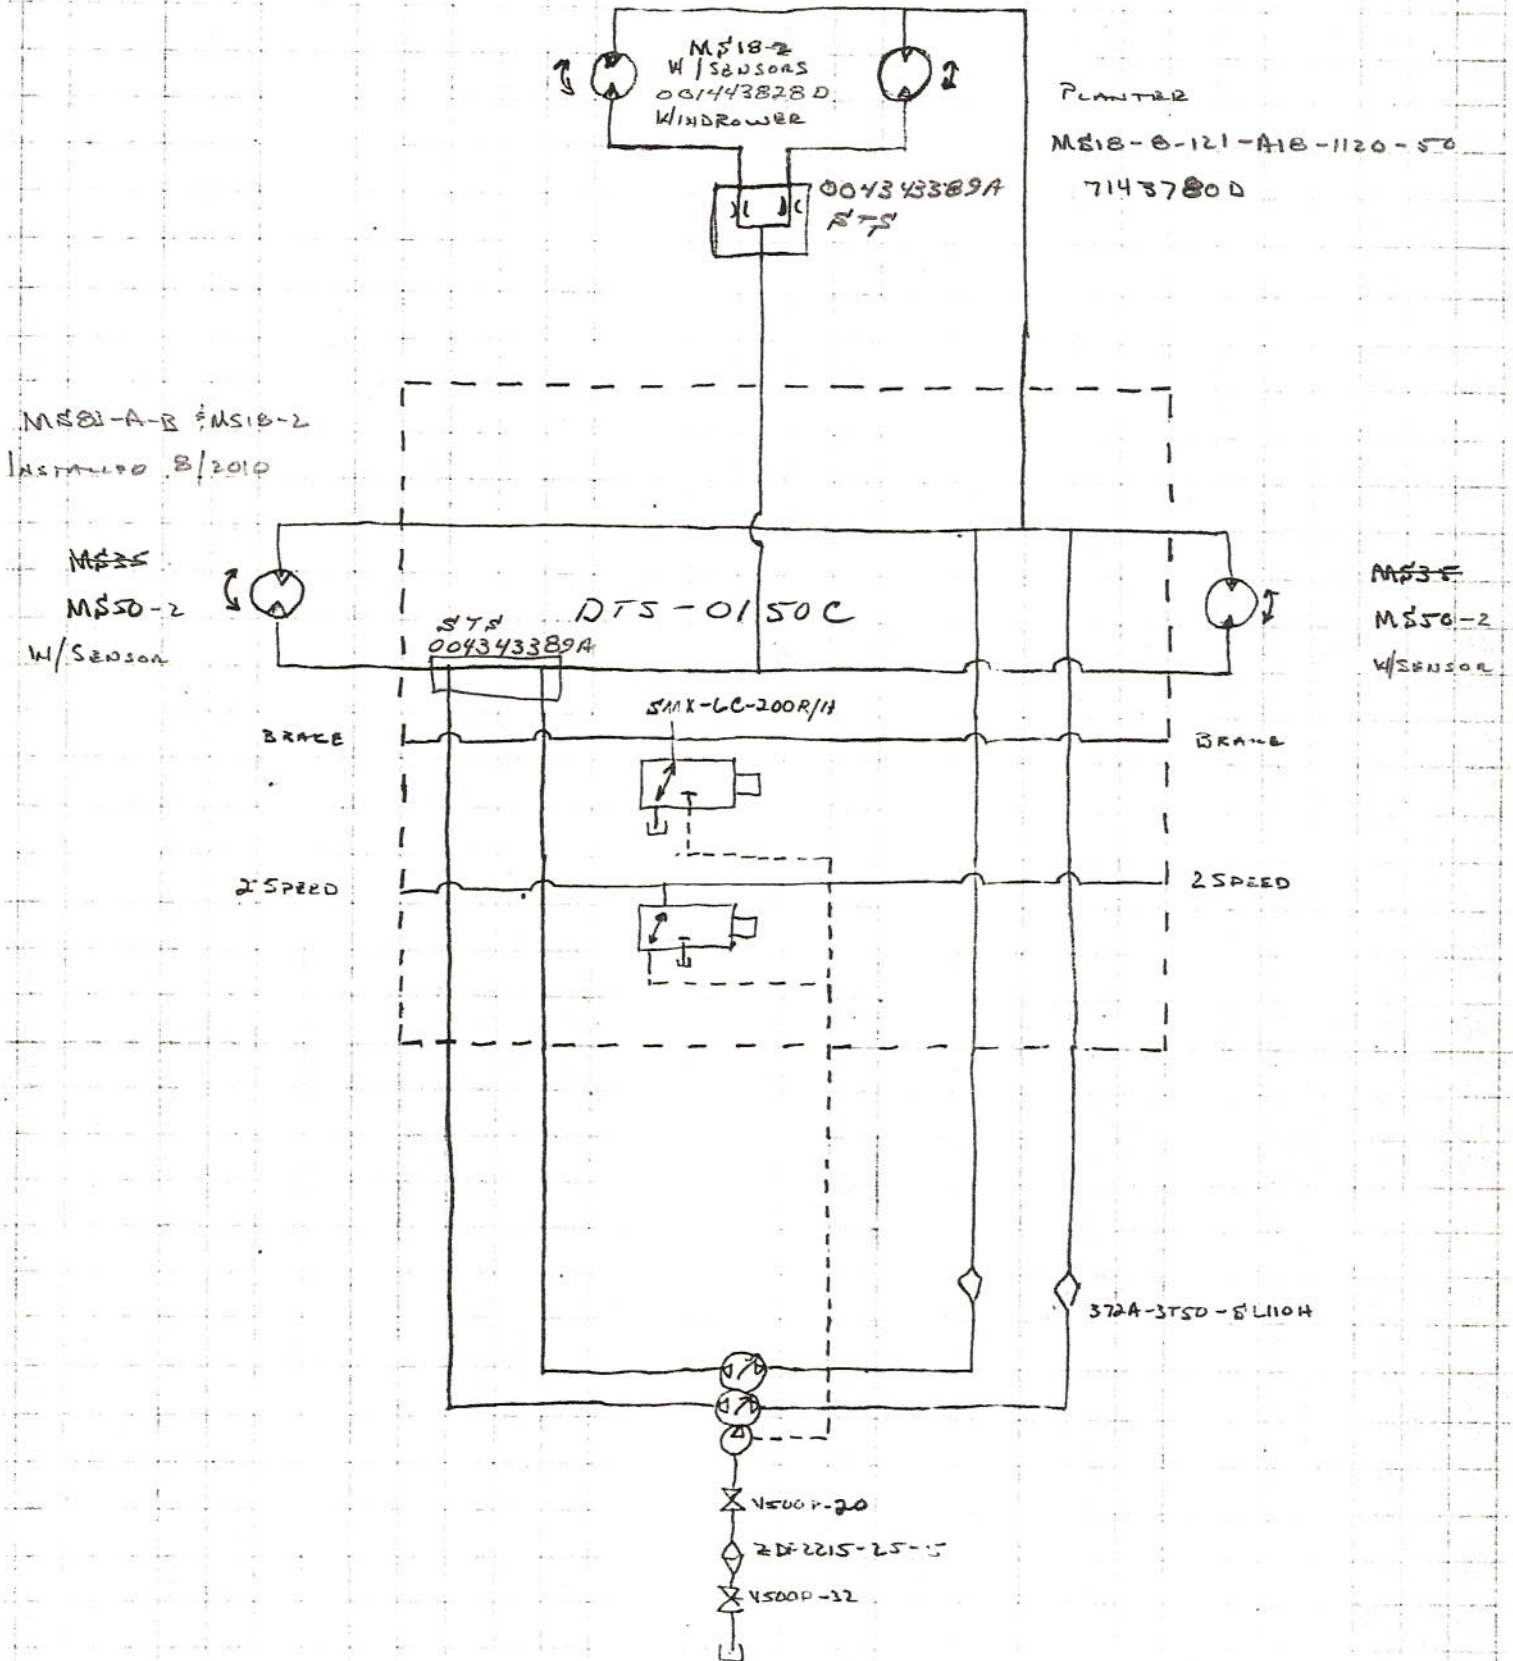 MS18-2
W/SENSORS
001443828D
WINDROWER
PLANTER
MS18-8-121-A18-1120-50
7143780D
004343389A
STS
INSTALLED 8/2010
MS35
MS50-2
W/SENSOR
DTS-0150C
STS
004343389A
MS35
MS50-2
W/SENSOR
SMX-6C-200R/H
BRAKE
BRAKE
2 SPEED
2 SPEED
372A-3T50-SL110H
V500P-20
V500P-32